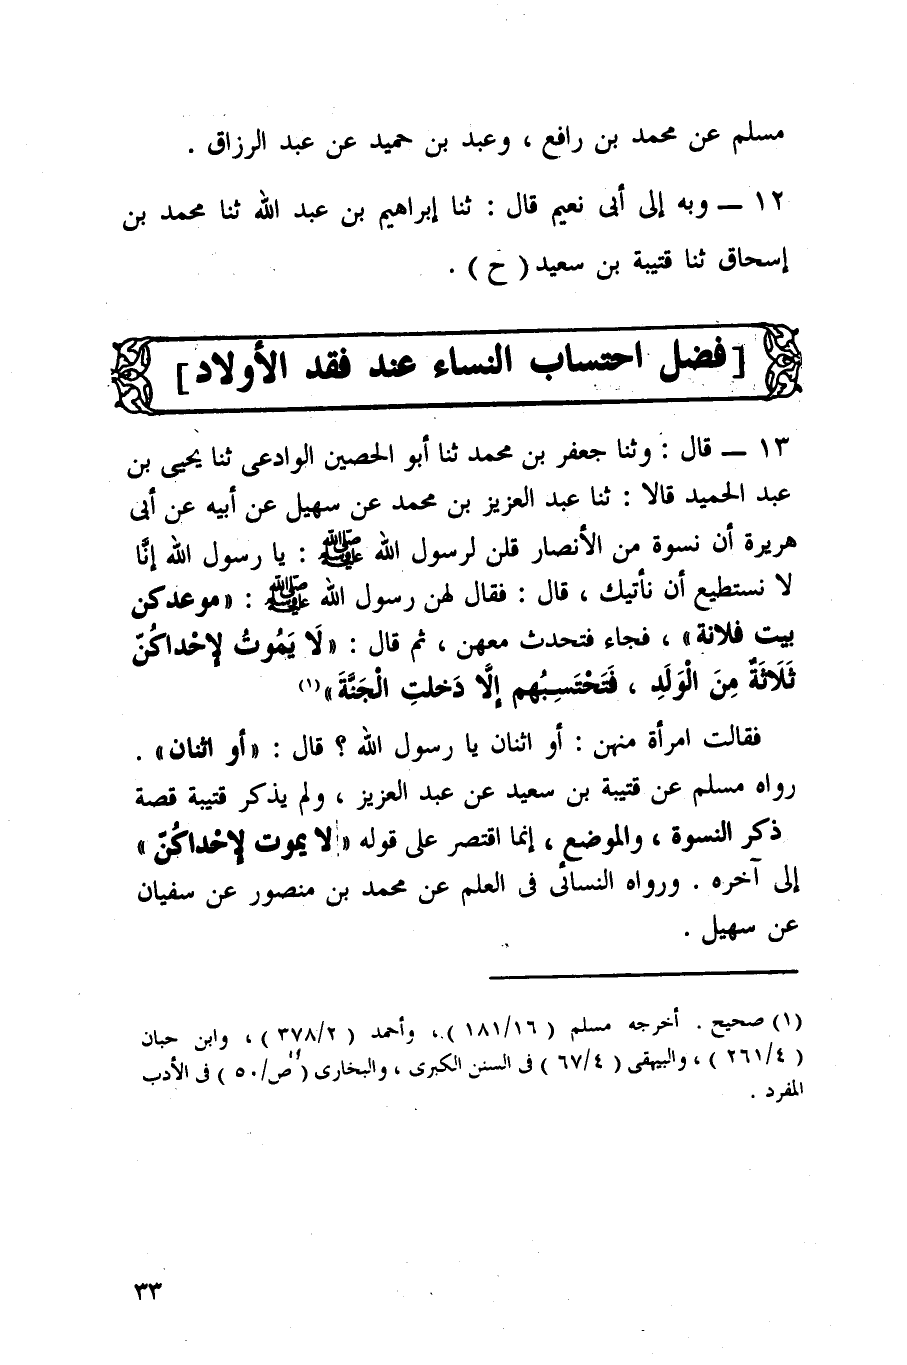 مسلم عن محمد بن رافع ، وعبد بن حميد عن عبد الرزاق .
١٢ ــ وبه إلى أبى نعيم قال : ثنا إبراهيم بن عبد الله ثنا محمد بن
إسحاق ثنا قتيبة بن سعيد ( ح ) .
[ فضل احتساب النساء عند فقد الأولاد ]
١٣ ــ قال : وثنا جعفر بن محمد ثنا أبو الحصين الوادعى ثنا يحيى بن
عبد الحميد قالا : ثنا عبد العزيز بن محمد عن سهيل عن أبيه عن أبى
هريرة أن نسوة من الأنصار قلن لرسول الله ﷺ : يا رسول الله إنَّا
لا نستطيع أن نأتيك ، قال : فقال لهن رسول الله ﷺ : «موعدكن
بيت فلانة» ، فجاء فتحدث معهن ، ثم قال : «لَا يَمُوتُ لإحْداكُنّ
ثَلَاثَةٌ مِنَ الْوَلَدِ ، فَتَحْتَسِبُهم إلَّا دَخلتِ الْجَنَّةَ»(١)
فقالت امرأة منهن : أو اثنان يا رسول الله ؟ قال : «أو اثنان» .
رواه مسلم عن قتيبة بن سعيد عن عبد العزيز ، ولم يذكر قتيبة قصة
ذكر النسوة ، والموضع ، إنما اقتصر على قوله «لا يموت لإحْداكُنّ»
إلى آخره . ورواه النسائى فى العلم عن محمد بن منصور عن سفيان
عن سهيل .
(١) صحيح . أخرجه مسلم ( ١٨١/١٦ ) ، وأحمد ( ٣٧٨/٢ ) ، وابن حبان
( ٢٦١/٤ ) ، والبيهقى ( ٦٧/٤ ) فى السنن الكبرى ، والبخارى ( ص/٥٠ ) فى الأدب
المفرد .
٣٣